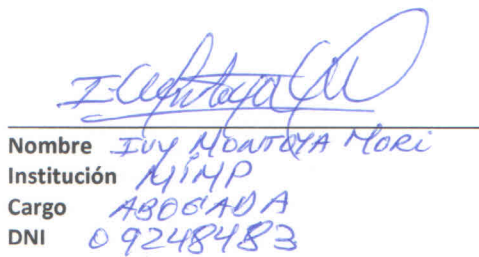 I. Montoya M
Nombre IVY MONTOYA MORI
Institución MIMP
Cargo ABOGADA
DNI 09248483